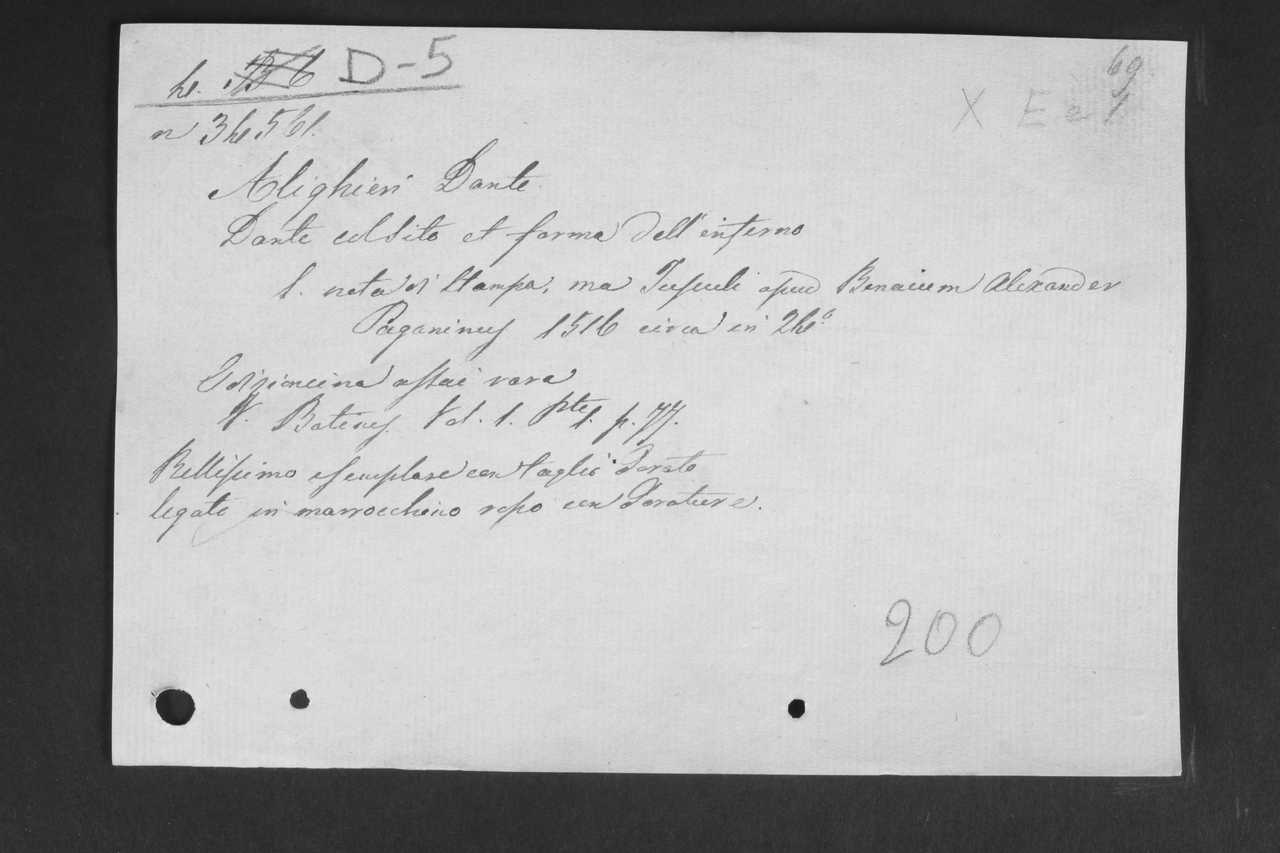 D-5
69
X E e 1
Alighieri Dante
Dante col sito et forma dell'inferno
s. nota di Stampa, ma Tusculi apud Benacum Alexander
Paganinus 1516 circa in 24.°
Edizioncina assai rara
V. Batines Vol. 1. pte 1. p. 77.
Bellissimo esemplare con taglio Dorato
legato in marrocchino rosso con Dorature.
200